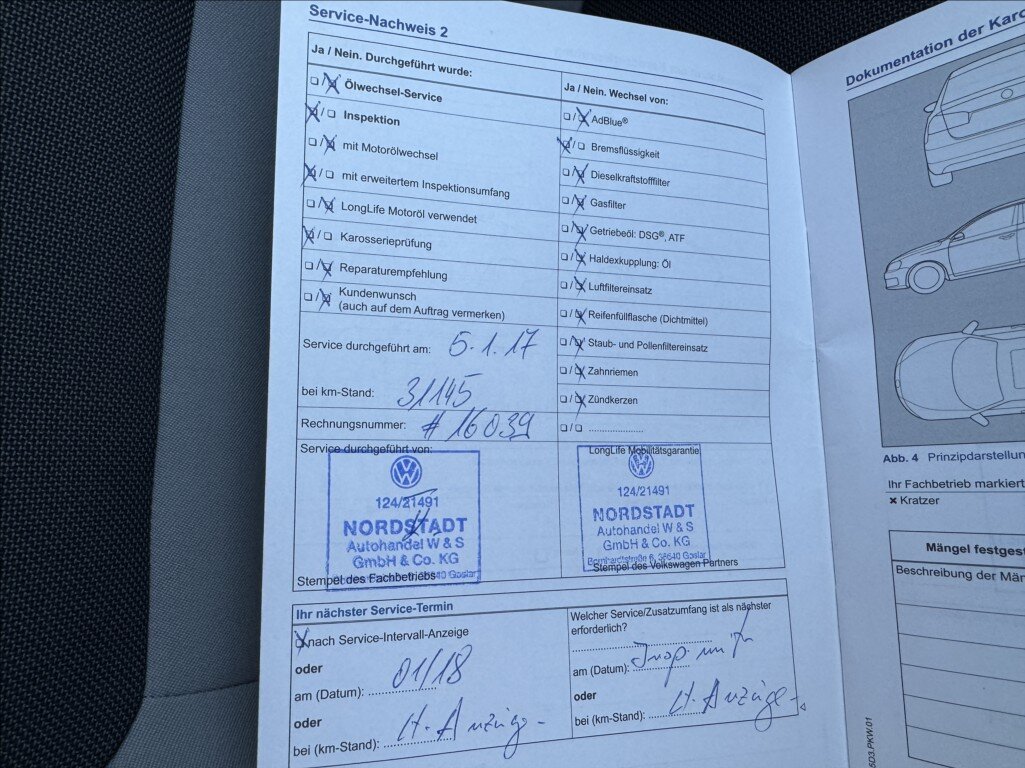 Service-Nachweis 2
Ja / Nein. Durchgeführt wurde:
❏ / ❏ Ölwechsel-Service
❏ / ❏ Inspektion
❏ / ❏ mit Motorölwechsel
❏ / ❏ mit erweitertem Inspektionsumfang
❏ / ❏ LongLife Motoröl verwendet
❏ / ❏ Karosserieprüfung
❏ / ❏ Reparaturempfehlung
❏ / ❏ Kundenwunsch
(auch auf dem Auftrag vermerken)
Service durchgeführt am: 5.1.17
bei km-Stand: 31145
Rechnungsnummer: #16039
Service durchgeführt von:
124/21491
NORDSTADT
Autohandel W & S
GmbH & Co. KG
38640 Goslar
Stempel des Fachbetriebs
Ja / Nein. Wechsel von:
❏ / ❏ AdBlue®
❏ / ❏ Bremsflüssigkeit
❏ / ❏ Dieselkraftstofffilter
❏ / ❏ Gasfilter
❏ / ❏ Getriebeöl: DSG®, ATF
❏ / ❏ Haldexkupplung: Öl
❏ / ❏ Luftfiltereinsatz
❏ / ❏ Reifenfüllflasche (Dichtmittel)
❏ / ❏ Staub- und Pollenfiltereinsatz
❏ / ❏ Zahnriemen
❏ / ❏ Zündkerzen
❏ / ❏ ....................
LongLife Mobilitätsgarantie
124/21491
NORDSTADT
Autohandel W & S
GmbH & Co. KG
Bornhardtstraße 6, 38640 Goslar
Stempel des Volkswagen Partners
Ihr nächster Service-Termin
❏ nach Service-Intervall-Anzeige
oder
am (Datum): 01/18
oder
bei (km-Stand): lt. Anzeige
Welcher Service/Zusatzumfang ist als nächster
erforderlich?
am (Datum): Insp. mit
oder
bei (km-Stand): lt. Anzeige
Dokumentation der Karo
Abb. 4 Prinzipdarstellun
Ihr Fachbetrieb markiert
✖ Kratzer
Mängel festgest
Beschreibung der Män
5D3.PKW.01